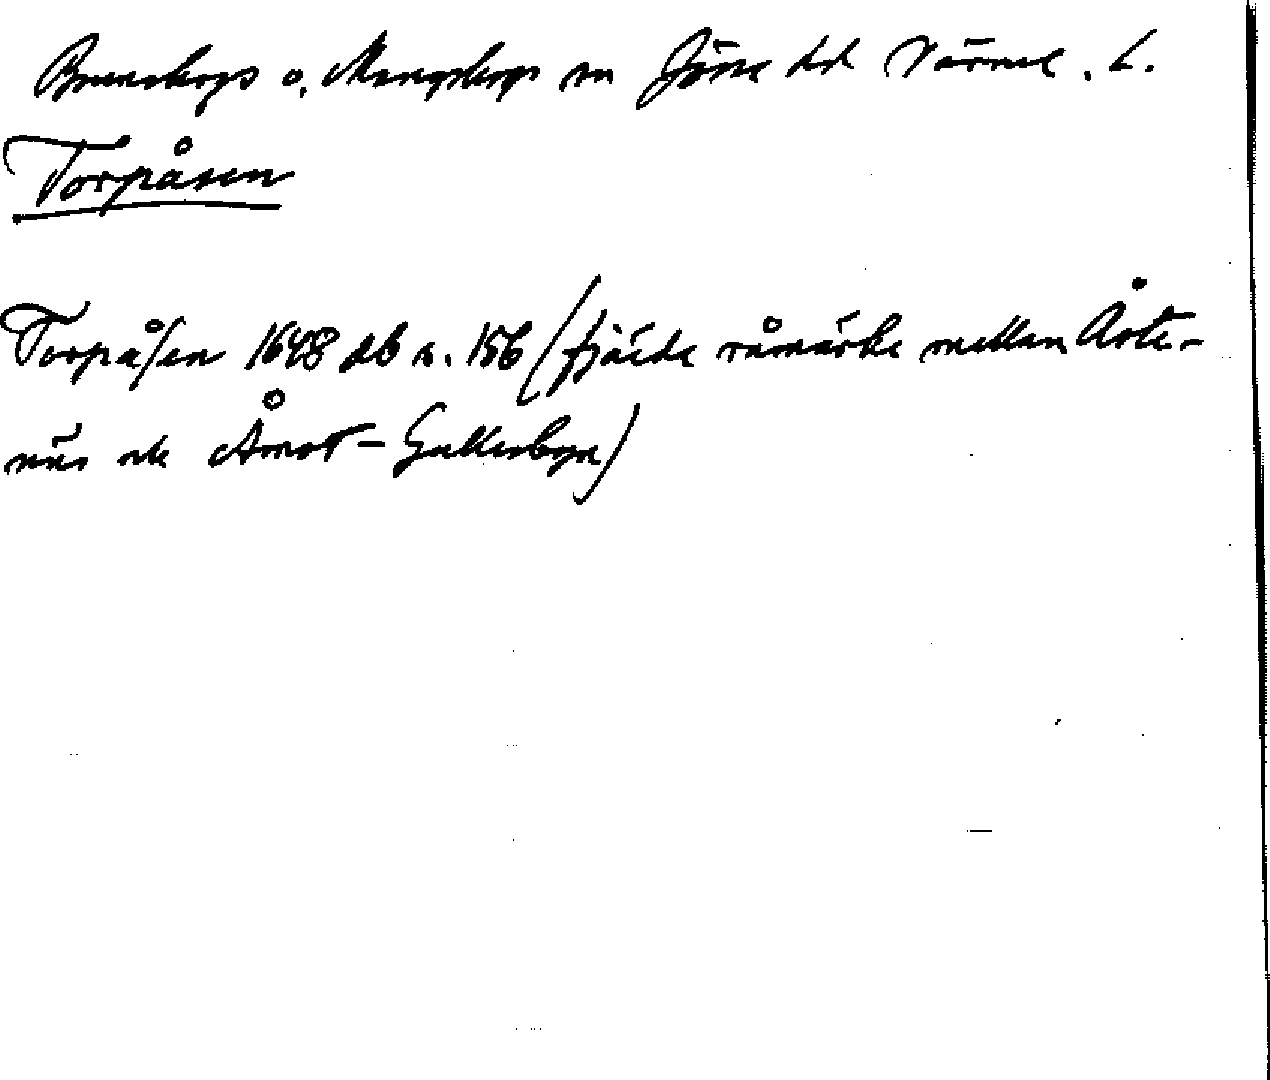 Brunskogs o. Mangskogs sn Jösse hd Värml. L.
Torpåsen
Torpåsen 1648 db s. 156 (fjärde råmärke mellan Årte-
näs och Åmot - Gullersbyn)